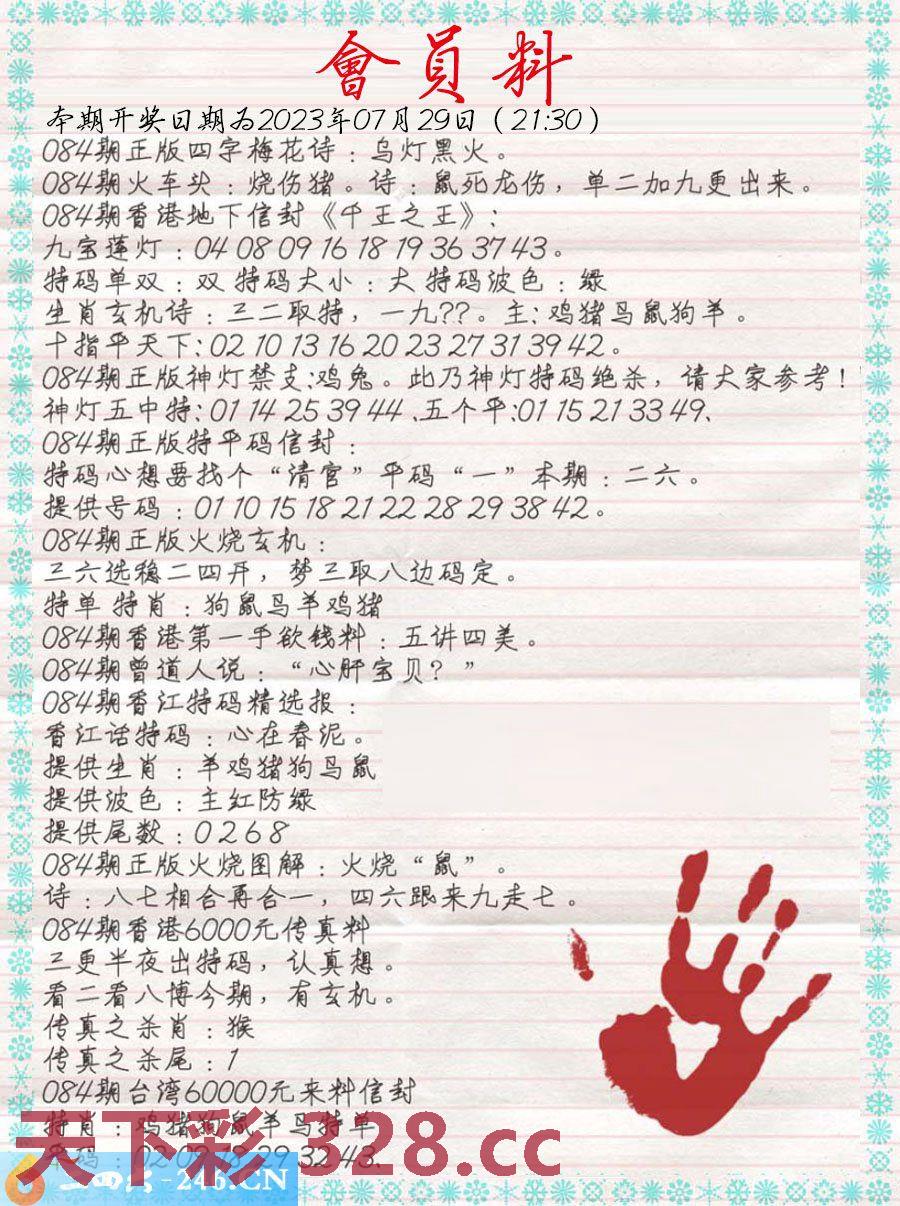 會員料
本期开奖日期为2023年07月29日（21:30）
084期正版四字梅花诗：乌灯黑火。
084期火车头：烧伤猪。诗：鼠死龙伤，单二加九更出来。
084期香港地下信封《千王之王》：
九宝莲灯：04 08 09 16 18 19 36 37 43。
特码单双：双 特码大小：大 特码波色：绿
生肖玄机诗：三二取特，一九??。主：鸡猪马鼠狗羊。
十指平天下：02 10 13 16 20 23 27 31 39 42。
084期正版神灯禁支:鸡兔。此乃神灯特码绝杀，请大家参考！
神灯五中特:01 14 25 39 44 .五个平:01 15 21 33 49.
084期正版特平码信封：
特码心想要找个“清官”平码“一”本期：二六。
提供号码：01 10 15 18 21 22 28 29 38 42。
084期正版火烧玄机：
三六选稳二四开，梦三取八边码定。
特单 特肖：狗鼠马羊鸡猪
084期香港第一手欲钱料：五讲四美。
084期曾道人说：“心肝宝贝？”
084期香江特码精选报：
香江话特码：心在春泥。
提供生肖：羊鸡猪狗马鼠
提供波色：主红防绿
提供尾数：0 2 6 8
084期正版火烧图解：火烧“鼠”。
诗：八七相合再合一，四六跟来九走七。
084期香港6000元传真料
三更半夜出特码，认真想。
看二看八博今期，有玄机。
传真之杀肖：猴
传真之杀尾：1
084期台湾60000元来料信封
特肖：鸡猪狗鼠羊马特单
天下彩 328.cc
-246.CN